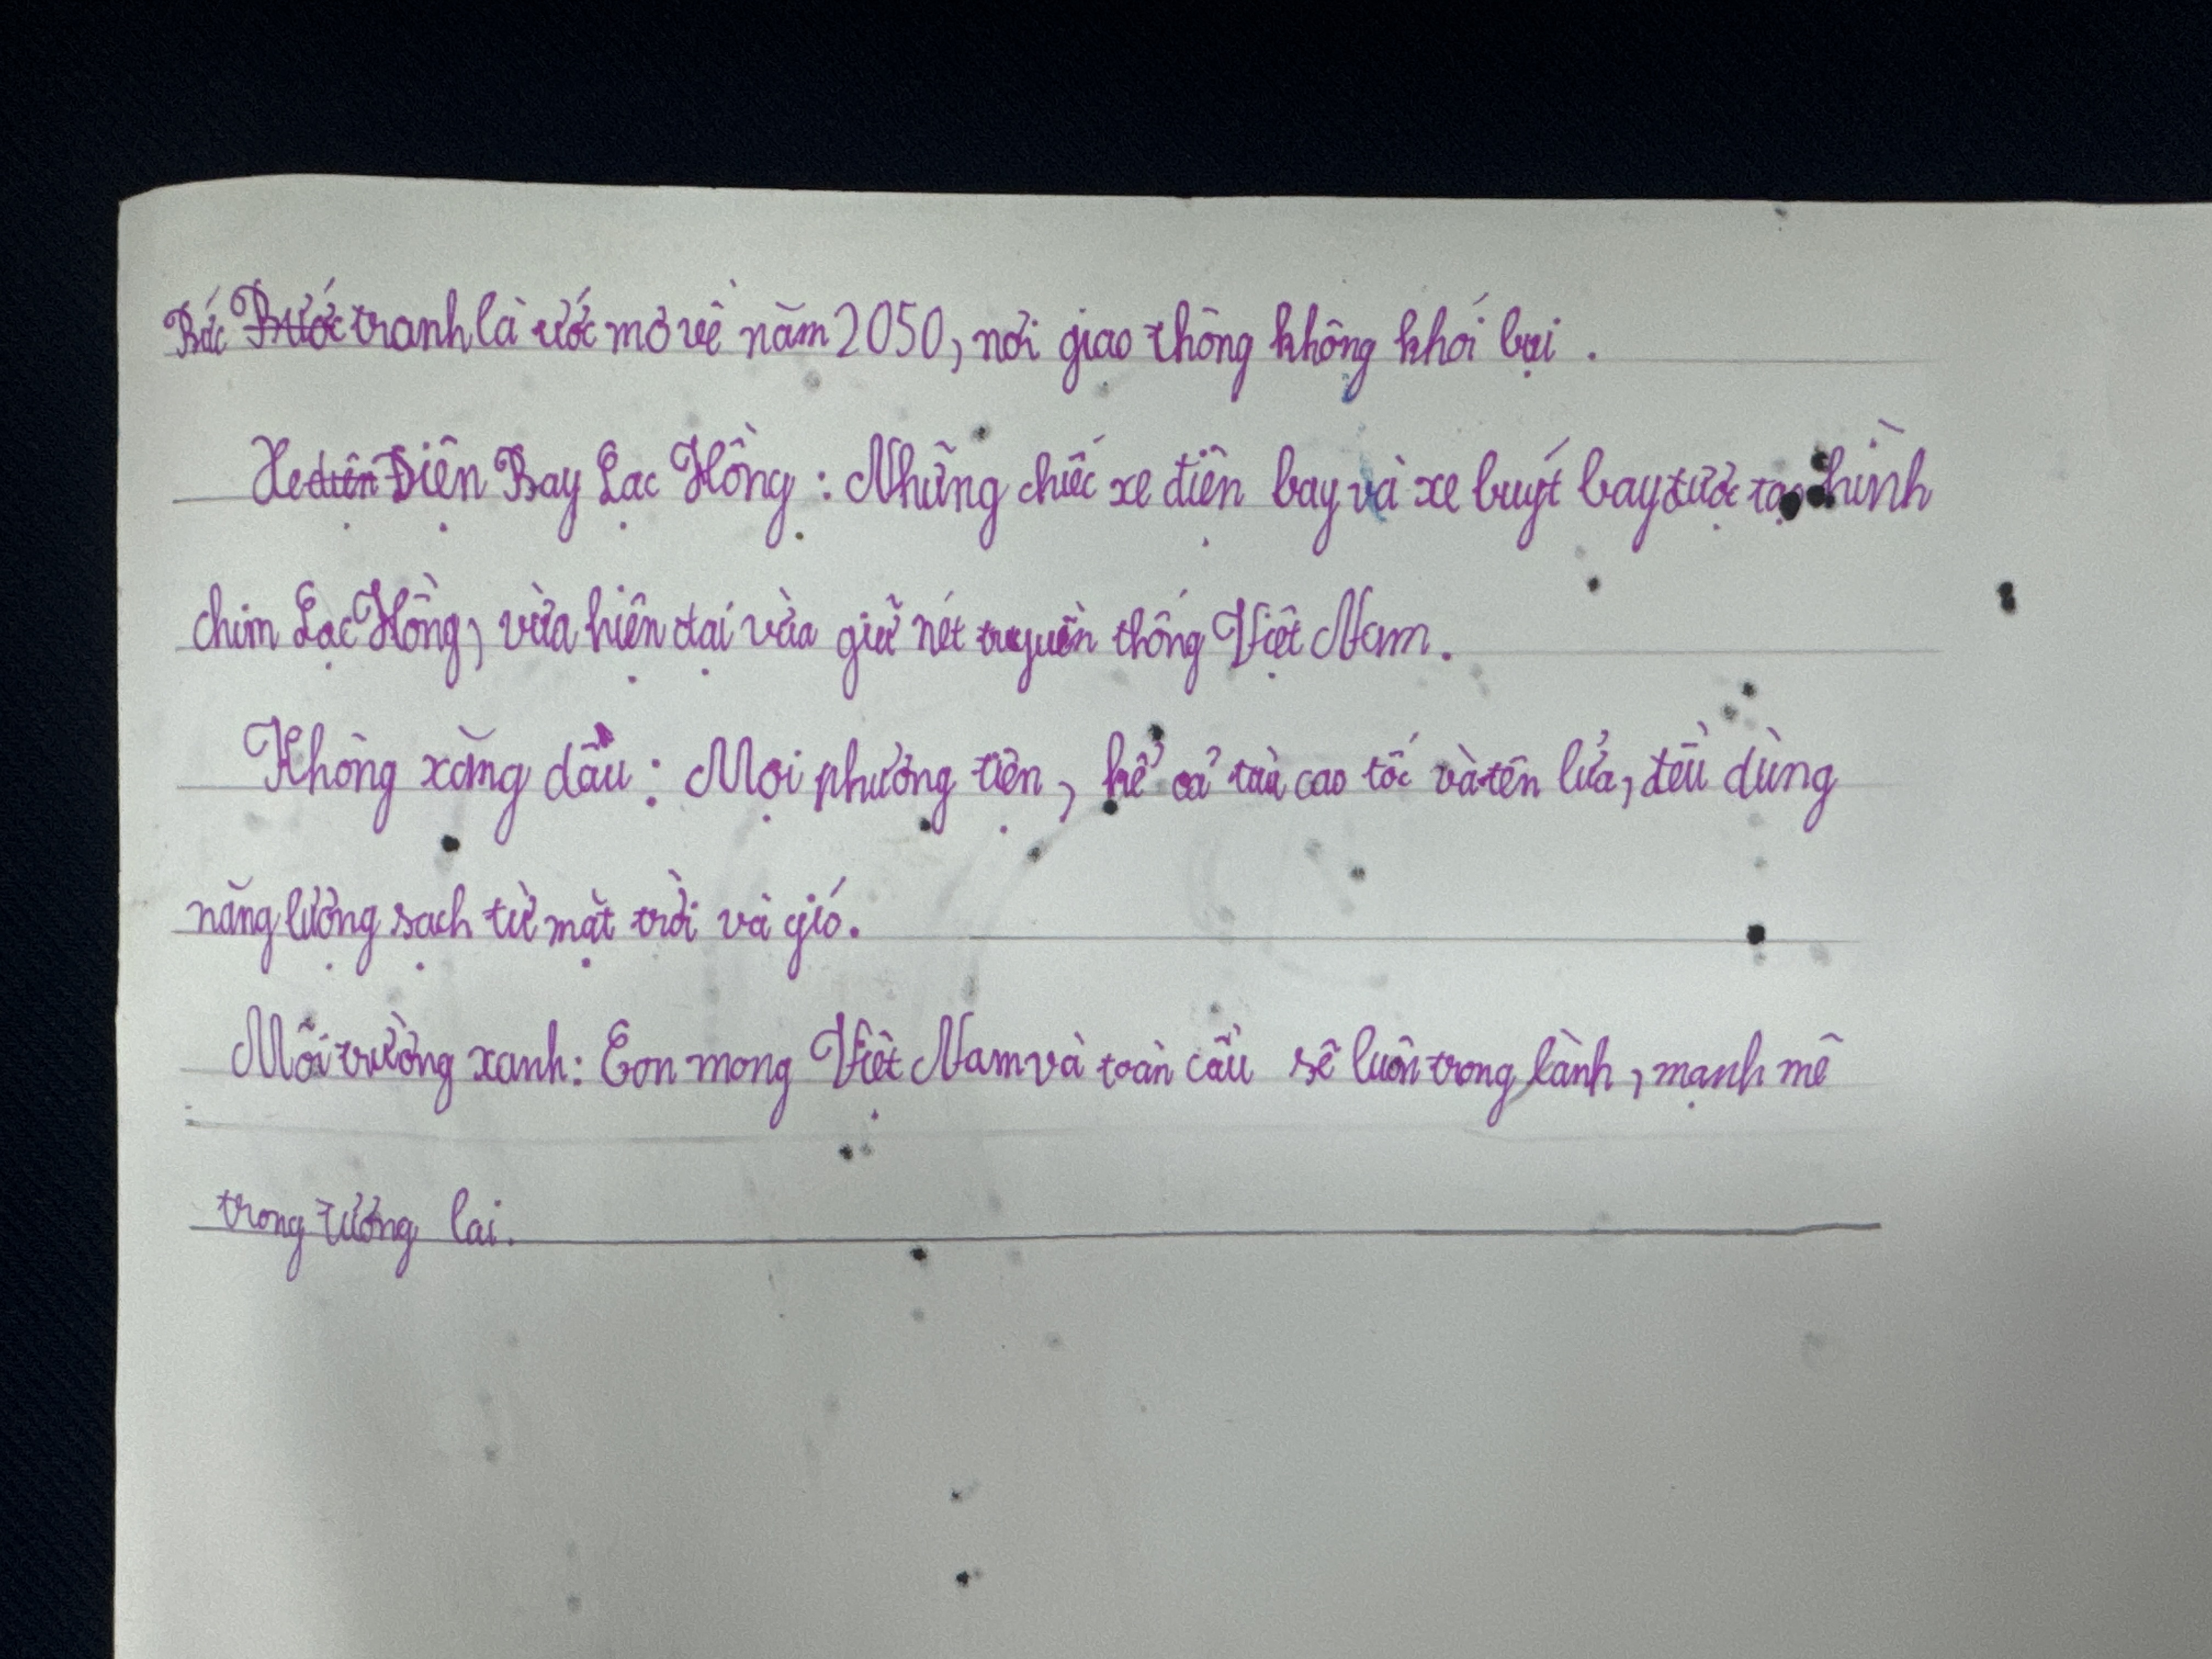 Bức Bước tranh là ước mơ về năm 2050, nơi giao thông không khói bụi.
Xe điện Điện Bay Lạc Hồng: Những chiếc xe điện bay và xe buýt bay được tạo hình
chim Lạc Hồng, vừa hiện đại vừa giữ nét truyền thống Việt Nam.
Không xăng dầu: Mọi phương tiện, kể cả tàu cao tốc và tên lửa, đều dùng
năng lượng sạch từ mặt trời và gió.
Môi trường xanh: Con mong Việt Nam và toàn cầu sẽ luôn trong lành, mạnh mẽ
trong tương lai.